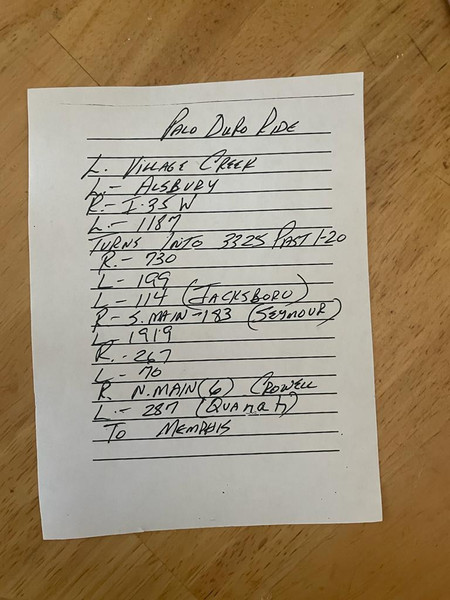 PALO DURO RIDE
L. VILLAGE CREEK
L.- ALSBURY
R.- I-35W
L.- 1187
TURNS INTO 3325 PAST I-20
R.- 730
L.- 199
L.- 114 (JACKSBORO)
R- S. MAIN -183 (SEYMOUR)
L- 1919
R.- 267
L.- 70
R. N. MAIN (6) CROWELL
L.- 287 (QUANAH)
TO MEMPHIS